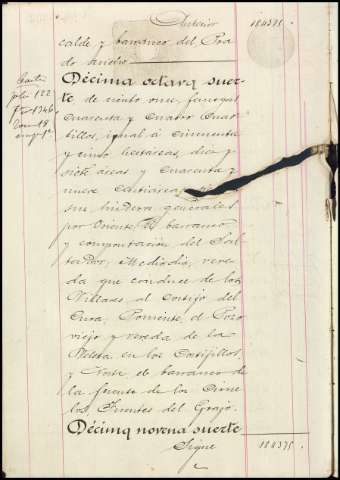 Anterior 184375.
calde y barranco del Pra
do ancho.
Décima octava suerte
te de ciento once fanegas
cuarenta y cuatro cuar
tillos, igual á cincuenta
y cinco hectáreas, diez y
siete áreas y cuarenta y
nueve centiáreas
sus linderos generales
por Oriente el barranco
y computación del Sal
tador; Mediodia, vere
da que conduce de los
Villares al Cortijo del
Cura; Poniente, el Pozo
viejo y vereda de la
en los Castillos,
y Norte el barranco de
la fuente de los Cirue
los, Fuentes del Grajo.
Décima novena suerte
Sigue 184375.
folio 122
1346